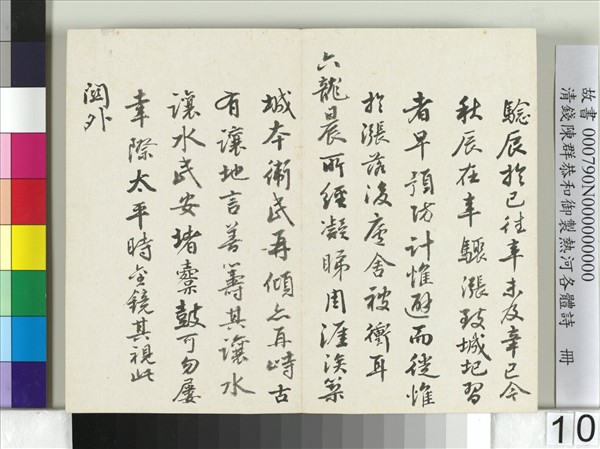 驗辰於已往辛未及辛巳今
秋辰在辛驟漲致城圮習
者早預防計惟避而徙惟
於漲落後廬舍被衝耳
六龍晨所經凝睇周涯涘築
城本衛民再傾亦再峙古
有讓地言善籌其讓水
讓水民安堵鼓可勿屢
幸際太平時金鏡其視此
外
故書 000790N000000000
清錢陳群恭和御製熱河各體詩 冊
10